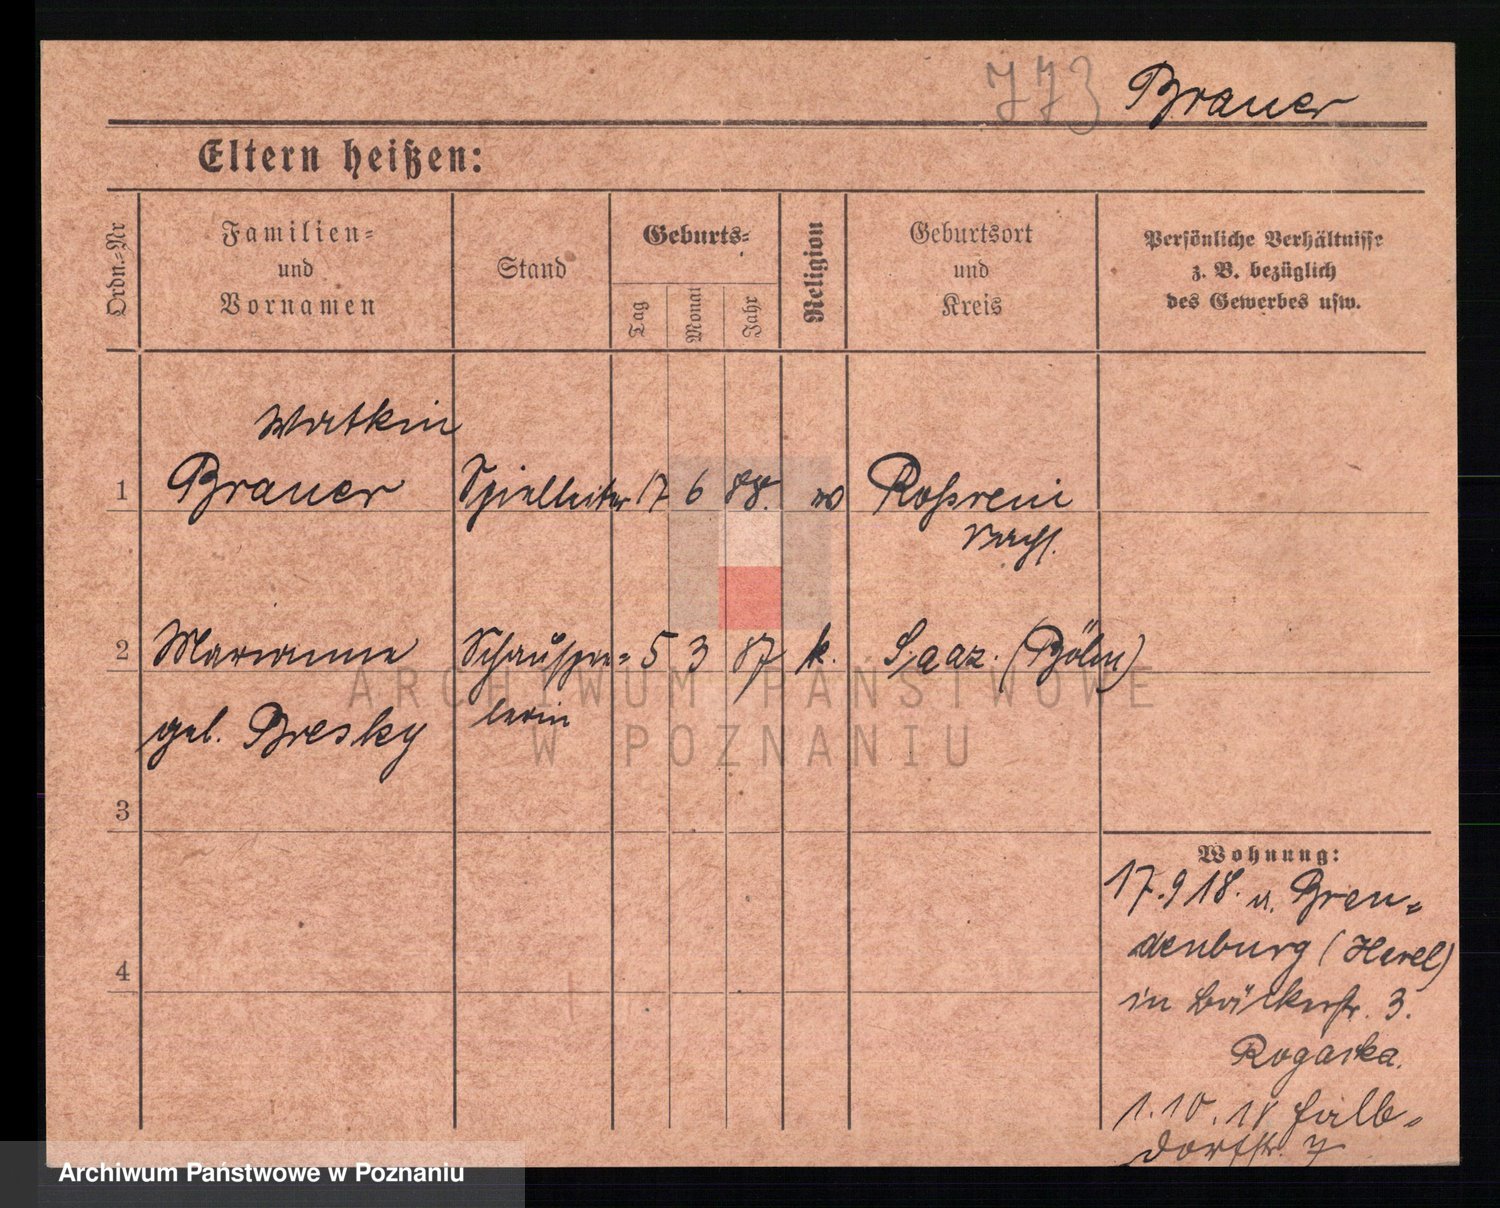 773 Brauer
Eltern heißen:
Ordn.-Nr
Familien-
und
Vornamen
Stand
Geburts-
Tag
Monat
Jahr
Religion
Geburtsort
und
Kreis
Persönliche Verhältnisse
z. B. bezüglich
des Gewerbes usw.
1 Brauer Spielleiter 17 6 88.
2 Marianne Schauspie- 5 3 87 k. Saaz. (Böhm)
lerin
geb. Bresky
3
4
Wohnung:
17.9 18. v. Bran-
denburg (Havel)
in Bäckerstr. 3.
1.10.18
dorfstr. 7
ARCHIWUM PAŃSTWOWE
W POZNANIU
Archiwum Państwowe w Poznaniu